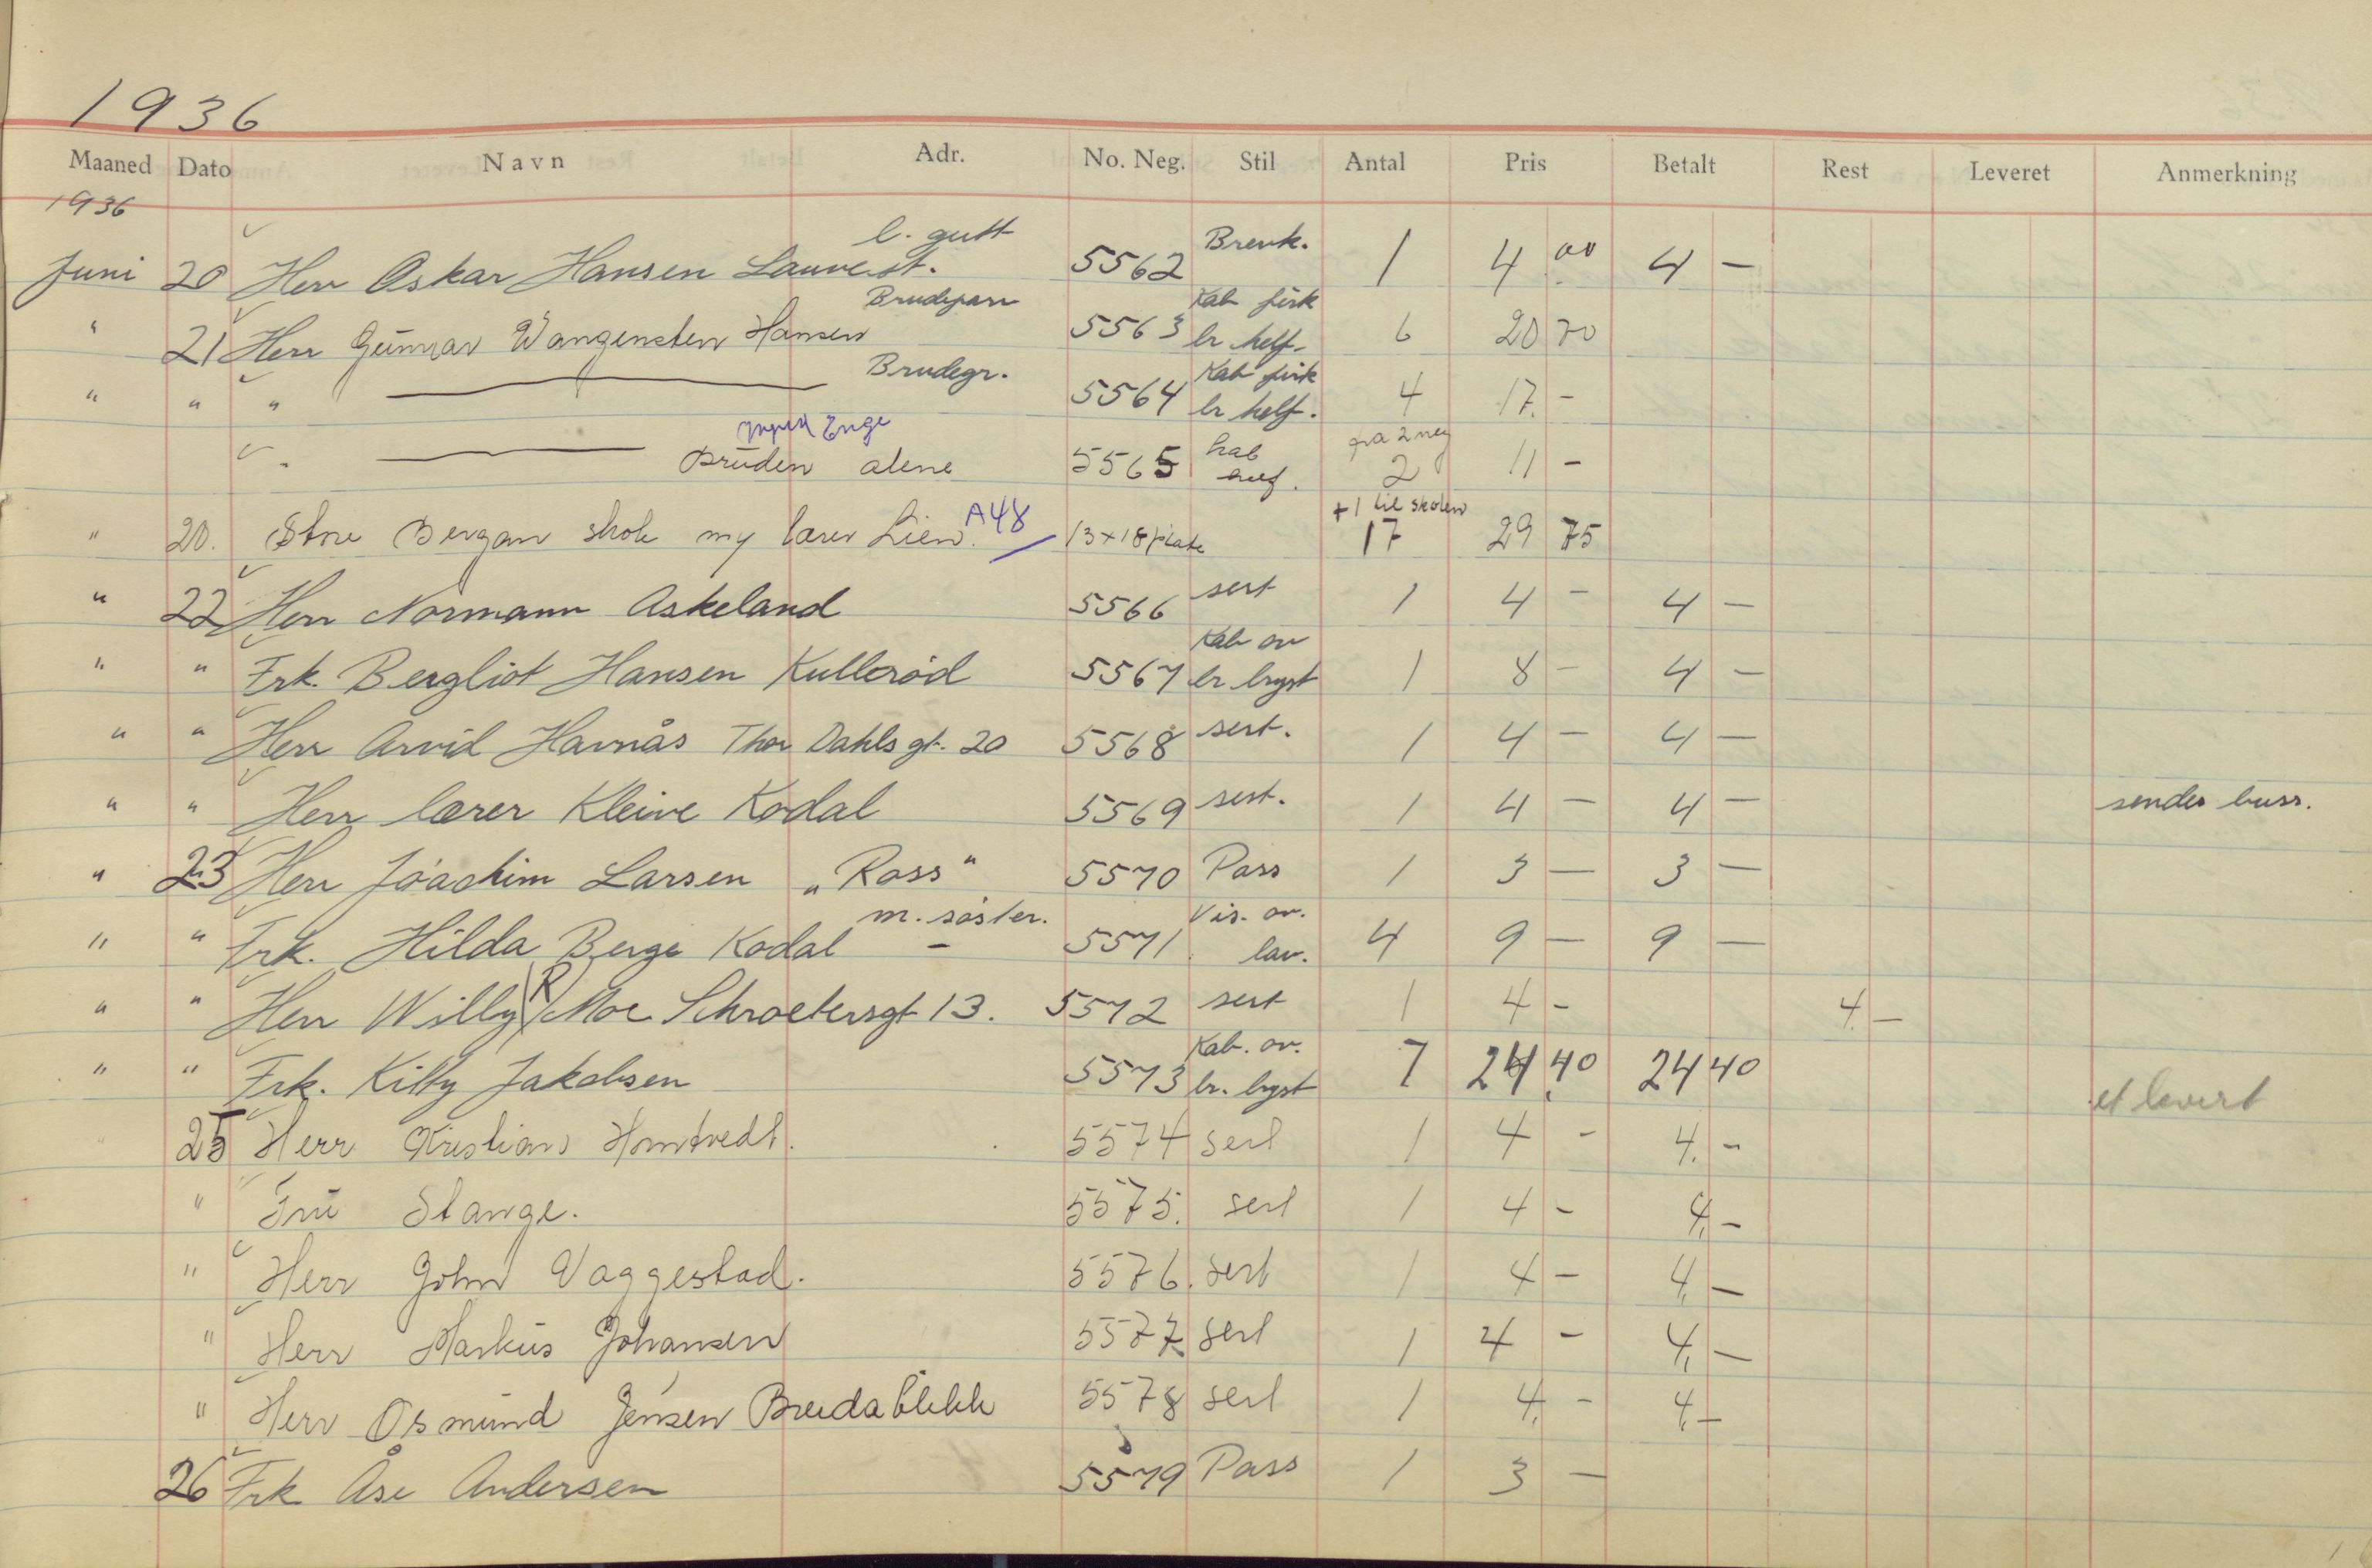 1936
Maaned Dato Navn Adr. No. Neg. Stil Antal Pris Betalt Rest Leveret Anmerkning
1936
l. gutt
Juni 20 Herr Oskar Hansen Lauvest. 5562 Brevk. 1 4 00 4 —
Brudepar Kab
" 21 Herr Gunnar Wangensten Hansen 5563 br helf. 6 20 70
Brudegr. Kab
" " " — 5564 br helf. 4 17. -
Enge fra 2 neg
" — Bruden alene 5565 kab 2 11 -
A48 +1 til skolen
" 20. Store Bergan skole lærer Lien. 13x18 plate 17 29 75
" 22 Herr Normann Askeland 5566 sert 1 4 - 4 —
Kab ov
" " Frk. Bergliot Hansen Kullerød 5567 br bryst 1 8 - 4 —
" " Herr Arvid Havnås Thor Dahls gt. 20 5568 sert. 1 4 - 4 —
" " Herr lærer Kleive Kodal 5569 sert. 1 4 - 4 — sendes buss.
" 23 Herr Joachim Larsen „Ross" 5570 Pass 1 3 — 3 —
m. søster. Vis. ov.
" " Frk. Hilda Berge Kodal - 5571 lav. 4 9 — 9 —
" " Herr Willy (R) Moe Schroetersgt 13. 5572 sert 1 4 - 4. —
Kab. ov.
" " Frk. Kitty Jakobsen 5573 br. bryst 7 24 40 24 40
et levert
" 25 Herr Kristian Homtvedt. 5574 sert 1 4 - 4. -
" Fru Stange. 5575. sert 1 4 - 4, -
" Herr John Vaggestad. 5576. sert 1 4 - 4, —
" Herr Markus Johansen 5577 sert 1 4 - 4, —
" Herr Osmund Jensen Breidablikk 5578 sert 1 4. - 4, —
26 Frk Åse Andersen 5579 Pass 1 3 —